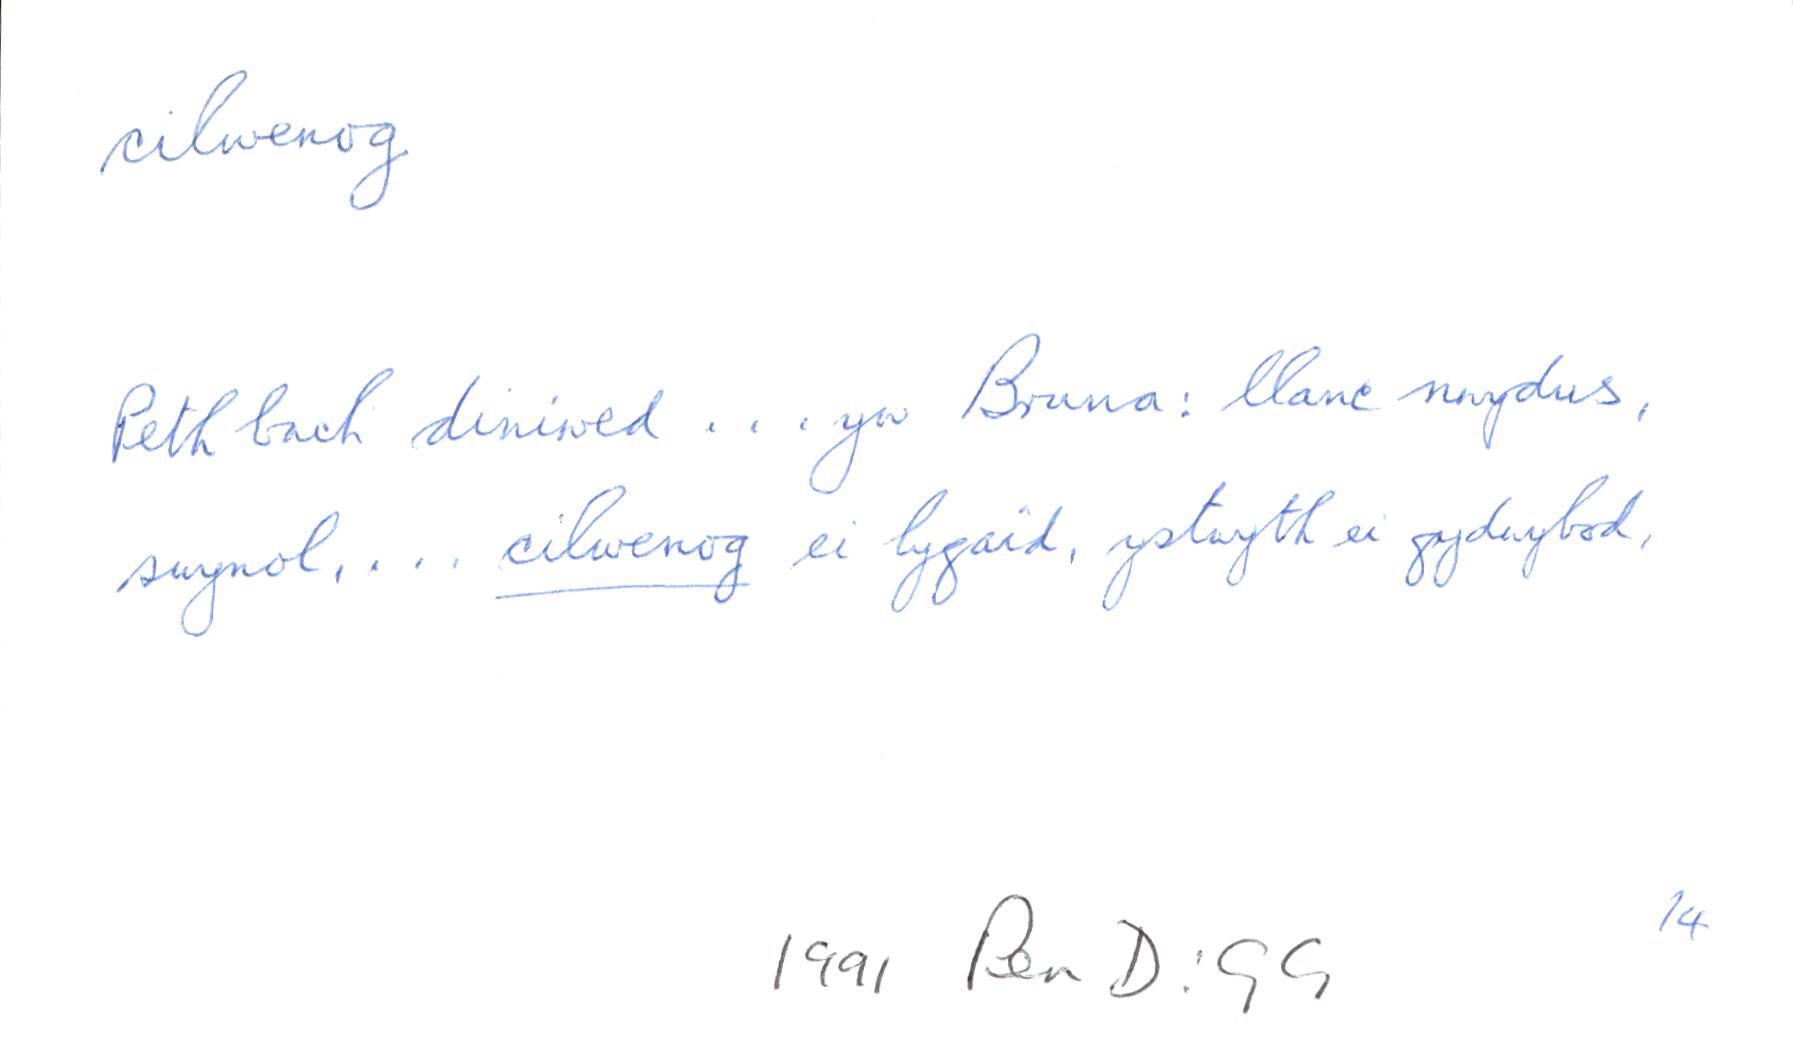 cilwenog
Peth bach diniwed . . . yw Bruna: llanc nwydus,
swynol, . . . cilwenog ei lygaid, ystwyth ei gydwybod,
14
1991 Pen D: GG